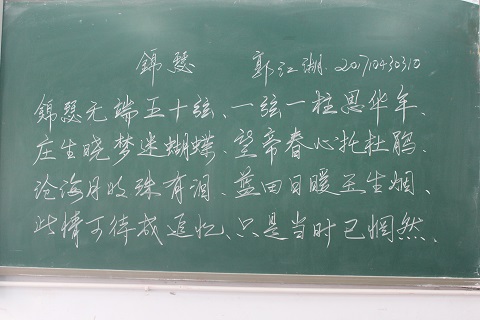 錦瑟 郭江湖 201710430310
錦瑟无端五十弦、一弦一柱思华年、
庄生晓梦迷蝴蝶、望帝春心托杜鹃、
沧海月明珠有泪、蓝田日暖玉生烟、
此情可待成追忆、只是当时已惘然、